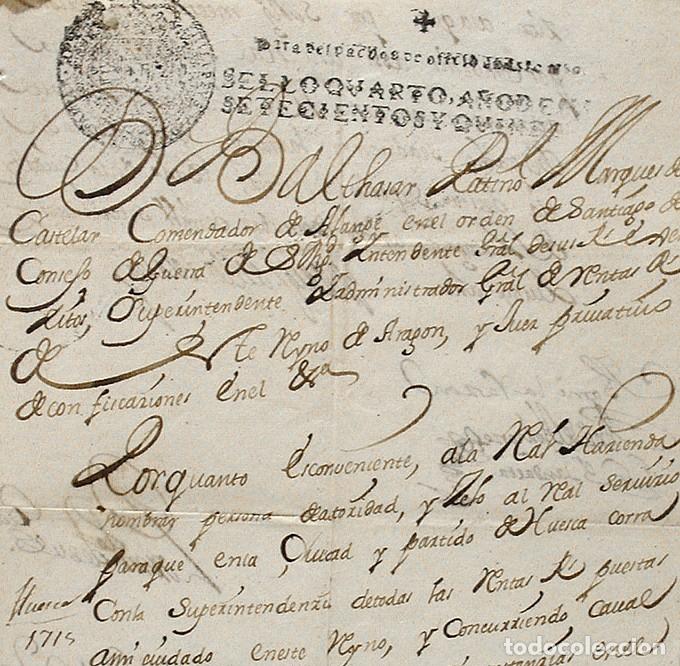 SELLO QUARTO, AÑO DE
SETECIENTOS Y QUIN
D Balthasar Patiño Marques de
Castelar Comendador de en el orden de Santiago de
Consejo de Guerra de S Mg. Intendente Gral de sus Rs
Superintendente administrador Gral de Rentas Rs
de este Reyno de Aragon, y Juez privativo
de confiscaziones en el &a
Porquanto es conveniente, a la Real Hazienda
nombrar persona de autoridad, y zelo al Real Servizio
para que en la Ciudad y partido de Huesca corra
Con la Superintendenzia de todas las Rentas Rs puestas
Huesca
1715
a mi cuidado en este Reyno, y Concurriendo
todocoleccion.net